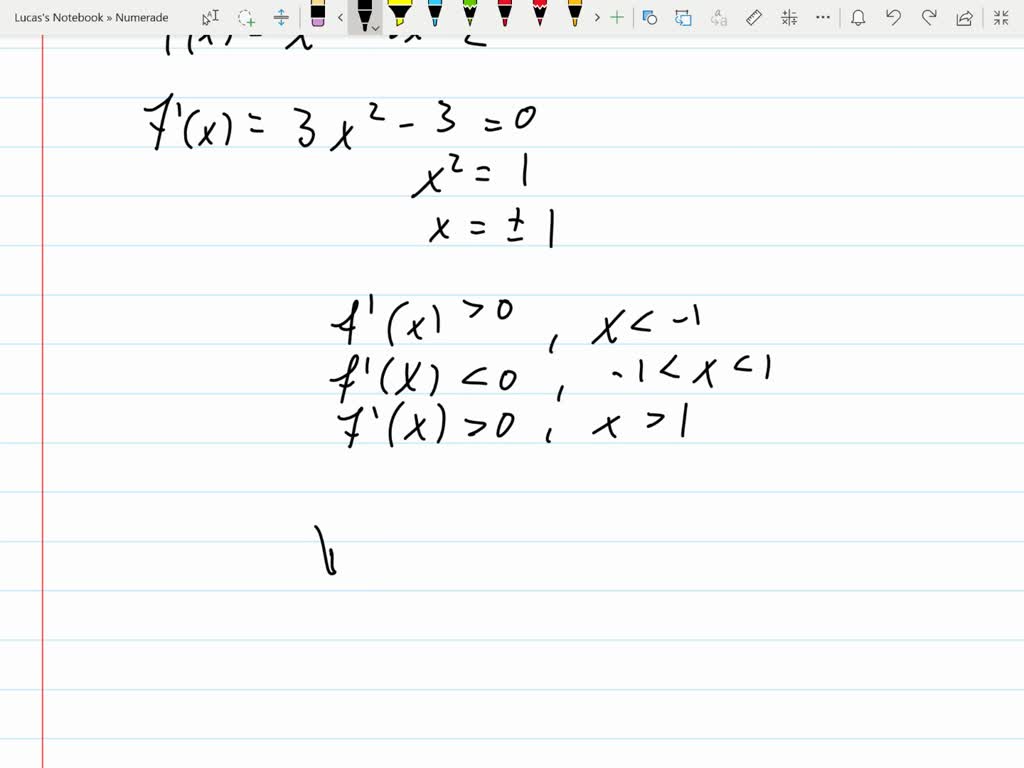 Lucas's Notebook » Numerade
f'(x) = 3x² - 3 = 0
x² = 1
x = ± 1
f'(x) > 0 , x < -1
f'(x) < 0 , -1 < x < 1
f'(x) > 0 , x > 1